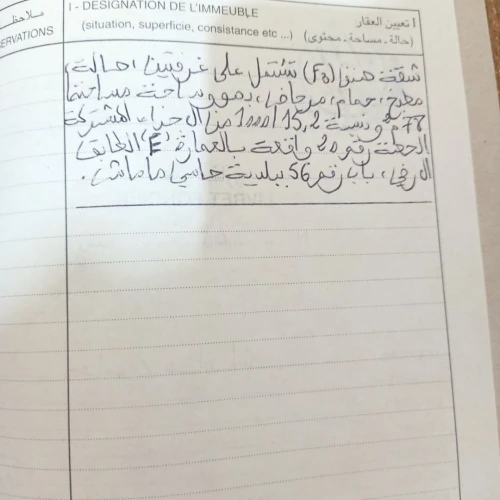 ملاحظ
OBSERVATIONS
I - DESIGNATION DE L'IMMEUBLE
(situation, superficie, consistance etc ...)
I تعيين العقار
(حالة - مساحة - محتوى)
شقة منزل (F3) تشتمل على غرفتين، صالة،
مطبخ، حمام، مرحاض، بهو وساحة مساحتها
77م2 و نسبة 15,2 / 1000 من الاجزاء المشتركة
الحصة رقم 20 واقعة بالعمارة "E" الطابق
باب رقم 56 ببلدية حاسي ماماش.